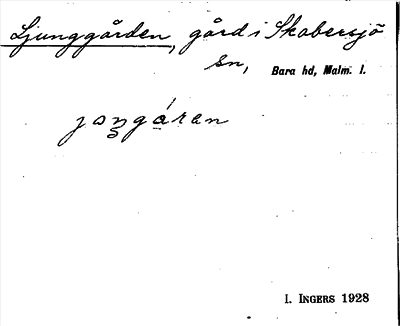 Ljunggården, gård i Skabersjö
sn, Bara hd, Malm. l.
joŋgáran
I. INGERS 1928